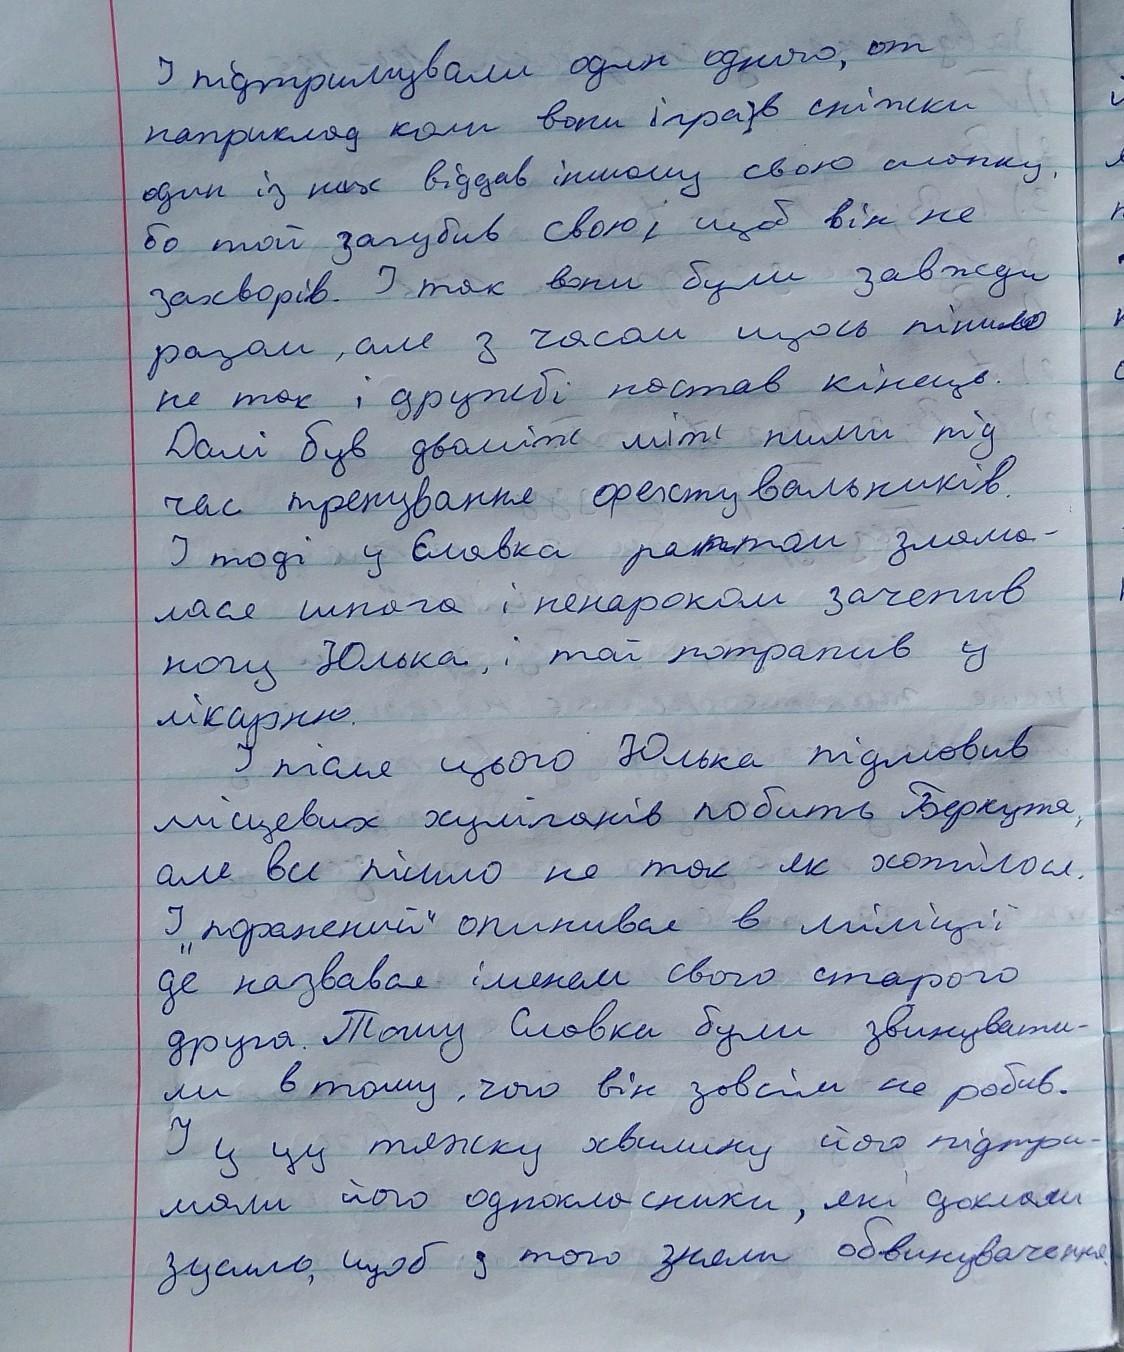 І підтримували один одного, от
наприклад коли вони іграїв сніжки
один із них віддав іншому свою шапку,
бо той загубив свою, щоб він не
захворів. І так вони були завжди
разом, але з часом щось пішло
не так і дружбі настав кінець.
Далі був двоміж між ними під
час тренування фехтувальників.
І тоді у Славка раптом злама-
лася шпага і ненароком зачепив
ногу Юлька, і той потрапив у
лікарню.
І після цього Юлька підмовив
місцевих хуліганів побить Беркута,
але все пішло не так як хотілося.
І „поражений" опинився в міліції
де назвався іменем свого старого
друга. Тому Славка були звинувати-
ли в тому, чого він зовсім не робив.
І у цу тяжку хвилину його підтри-
мали його однокласники, які доклали
зусиль, щоб з того зняли обвинувачення.